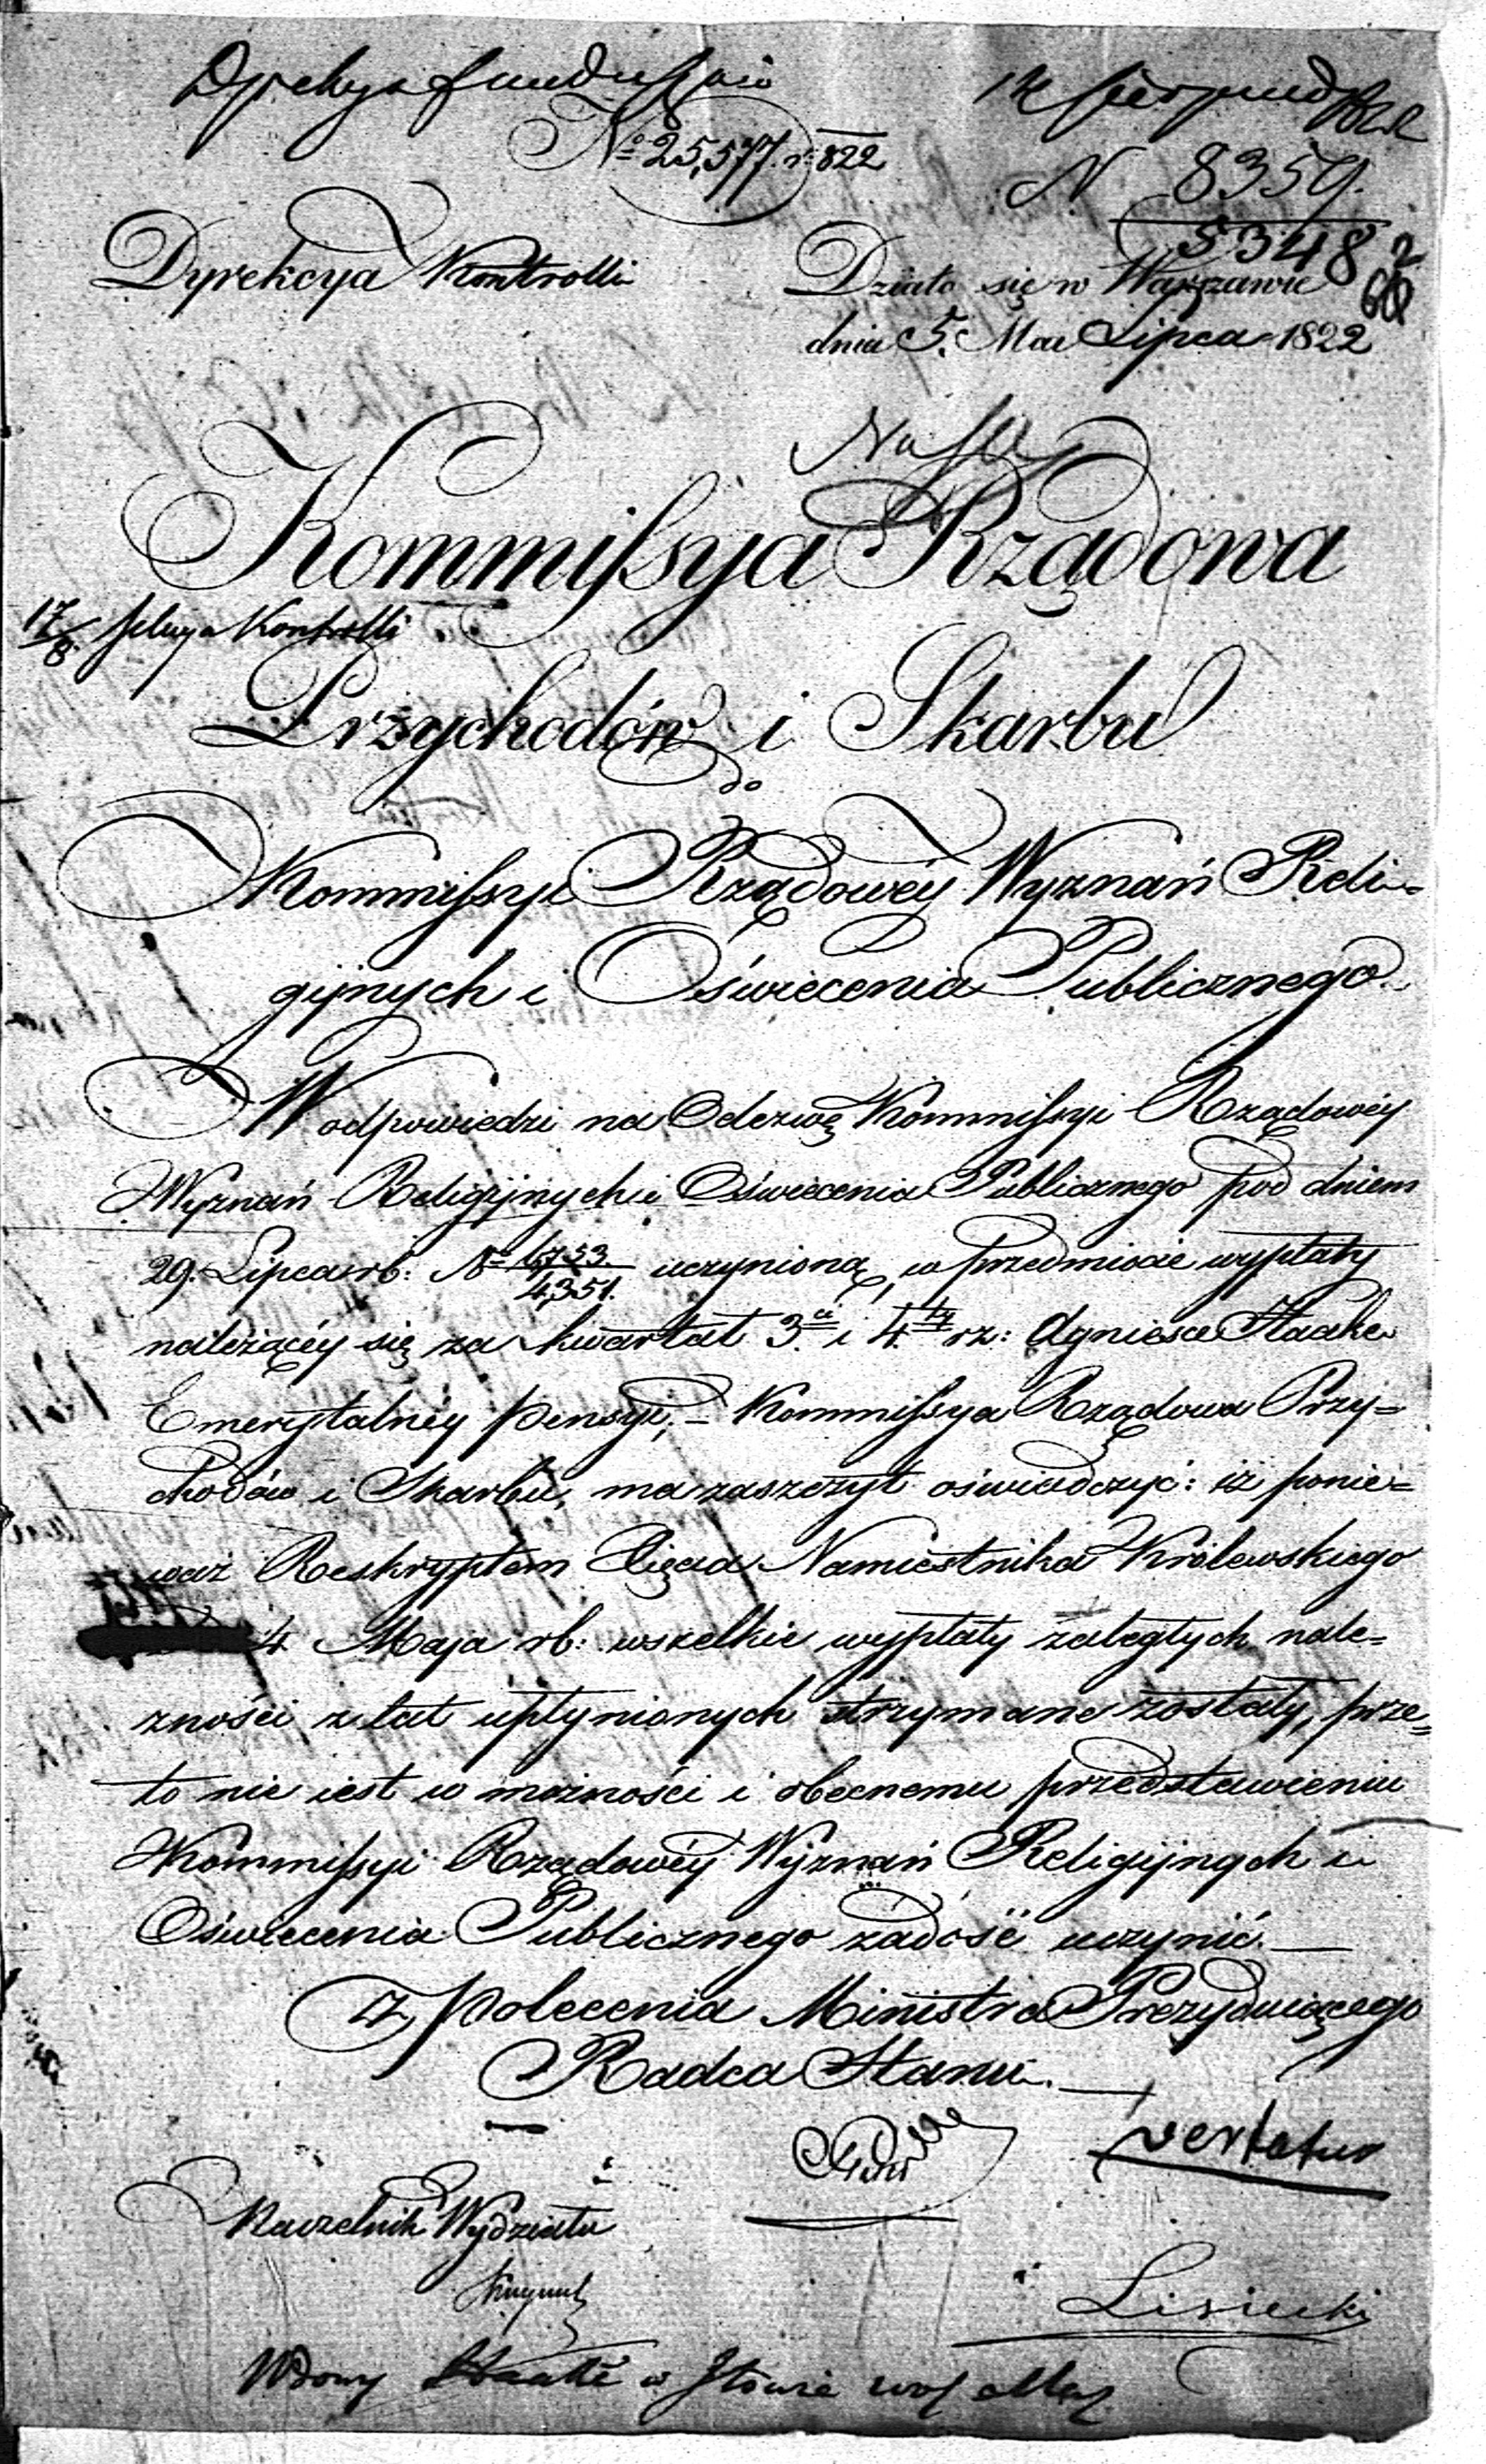 12 Sierpnia 1822
No 25,577. r. 822
N 8359.
5348
Dyrekcya Kontrolli
Działo się w Warszawie
dnia 5. Mca Lipca 1822
Kommissya Rządowa
17/8 Kontrolli
Przychodów i Skarbu
do
Kommissyi Rządowéy Wyznań Reli=
gijnych i Oświecenia Publicznego.
W odpowiedzi na Odezwę Kommissyi Rządowéy
Wyznań Religijnych i Oświecenia Publicznego pod dniem
29. Lipca rb: No 6753./4,351. uczynioną, w przedmiocie wypłaty
należącéy się za kwartał 3.ci i 4.ty rz: Agniesce Haake
Emerytalnéy pensyi, – Kommissya Rządowa Przy=
chodów i Skarbu, ma zaszczyt oświadczyć: iż ponie=
waż Reskryptem Xięcia Namiestnika Królewskiego
4 Maja rb: wszelkie wypłaty zaległych nale=
zności z lat upłynionych wstrzymane zostały, prze=
to nie iest w możności i obecnemu przedstawieniu
Kommissyi Rządowéy Wyznań Religijnych i
Oświecenia Publicznego zadość uczynić. —
Z polecenia Ministra Prezyduiącego
Radca Stanu. —
vertatur
Naczelnik Wydziału
Lisiecki
Wdowy Haake w